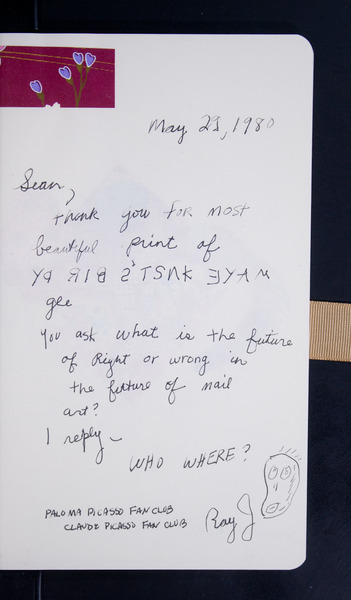 May 23, 1980
Sean,
thank you for most
beautiful print of
gee
you ask what is the future
of Right or wrong in
the future of mail
art?
I reply –
WHO WHERE?
PALOMA PICASSO FAN CLUB
CLAUDE PICASSO FAN CLUB
Ray J